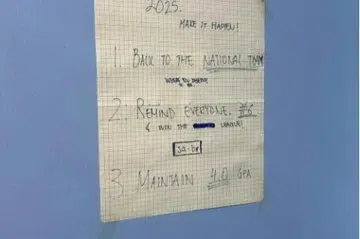 2025.
MAKE IT HAPPEN!
1. BACK TO THE NATIONAL TEAM
WHERE YOU DESERVE
TO BE.
2. REMIND EVERYONE. #6
& WIN THE LEAGUE!
3. MAINTAIN 4.0 GPA